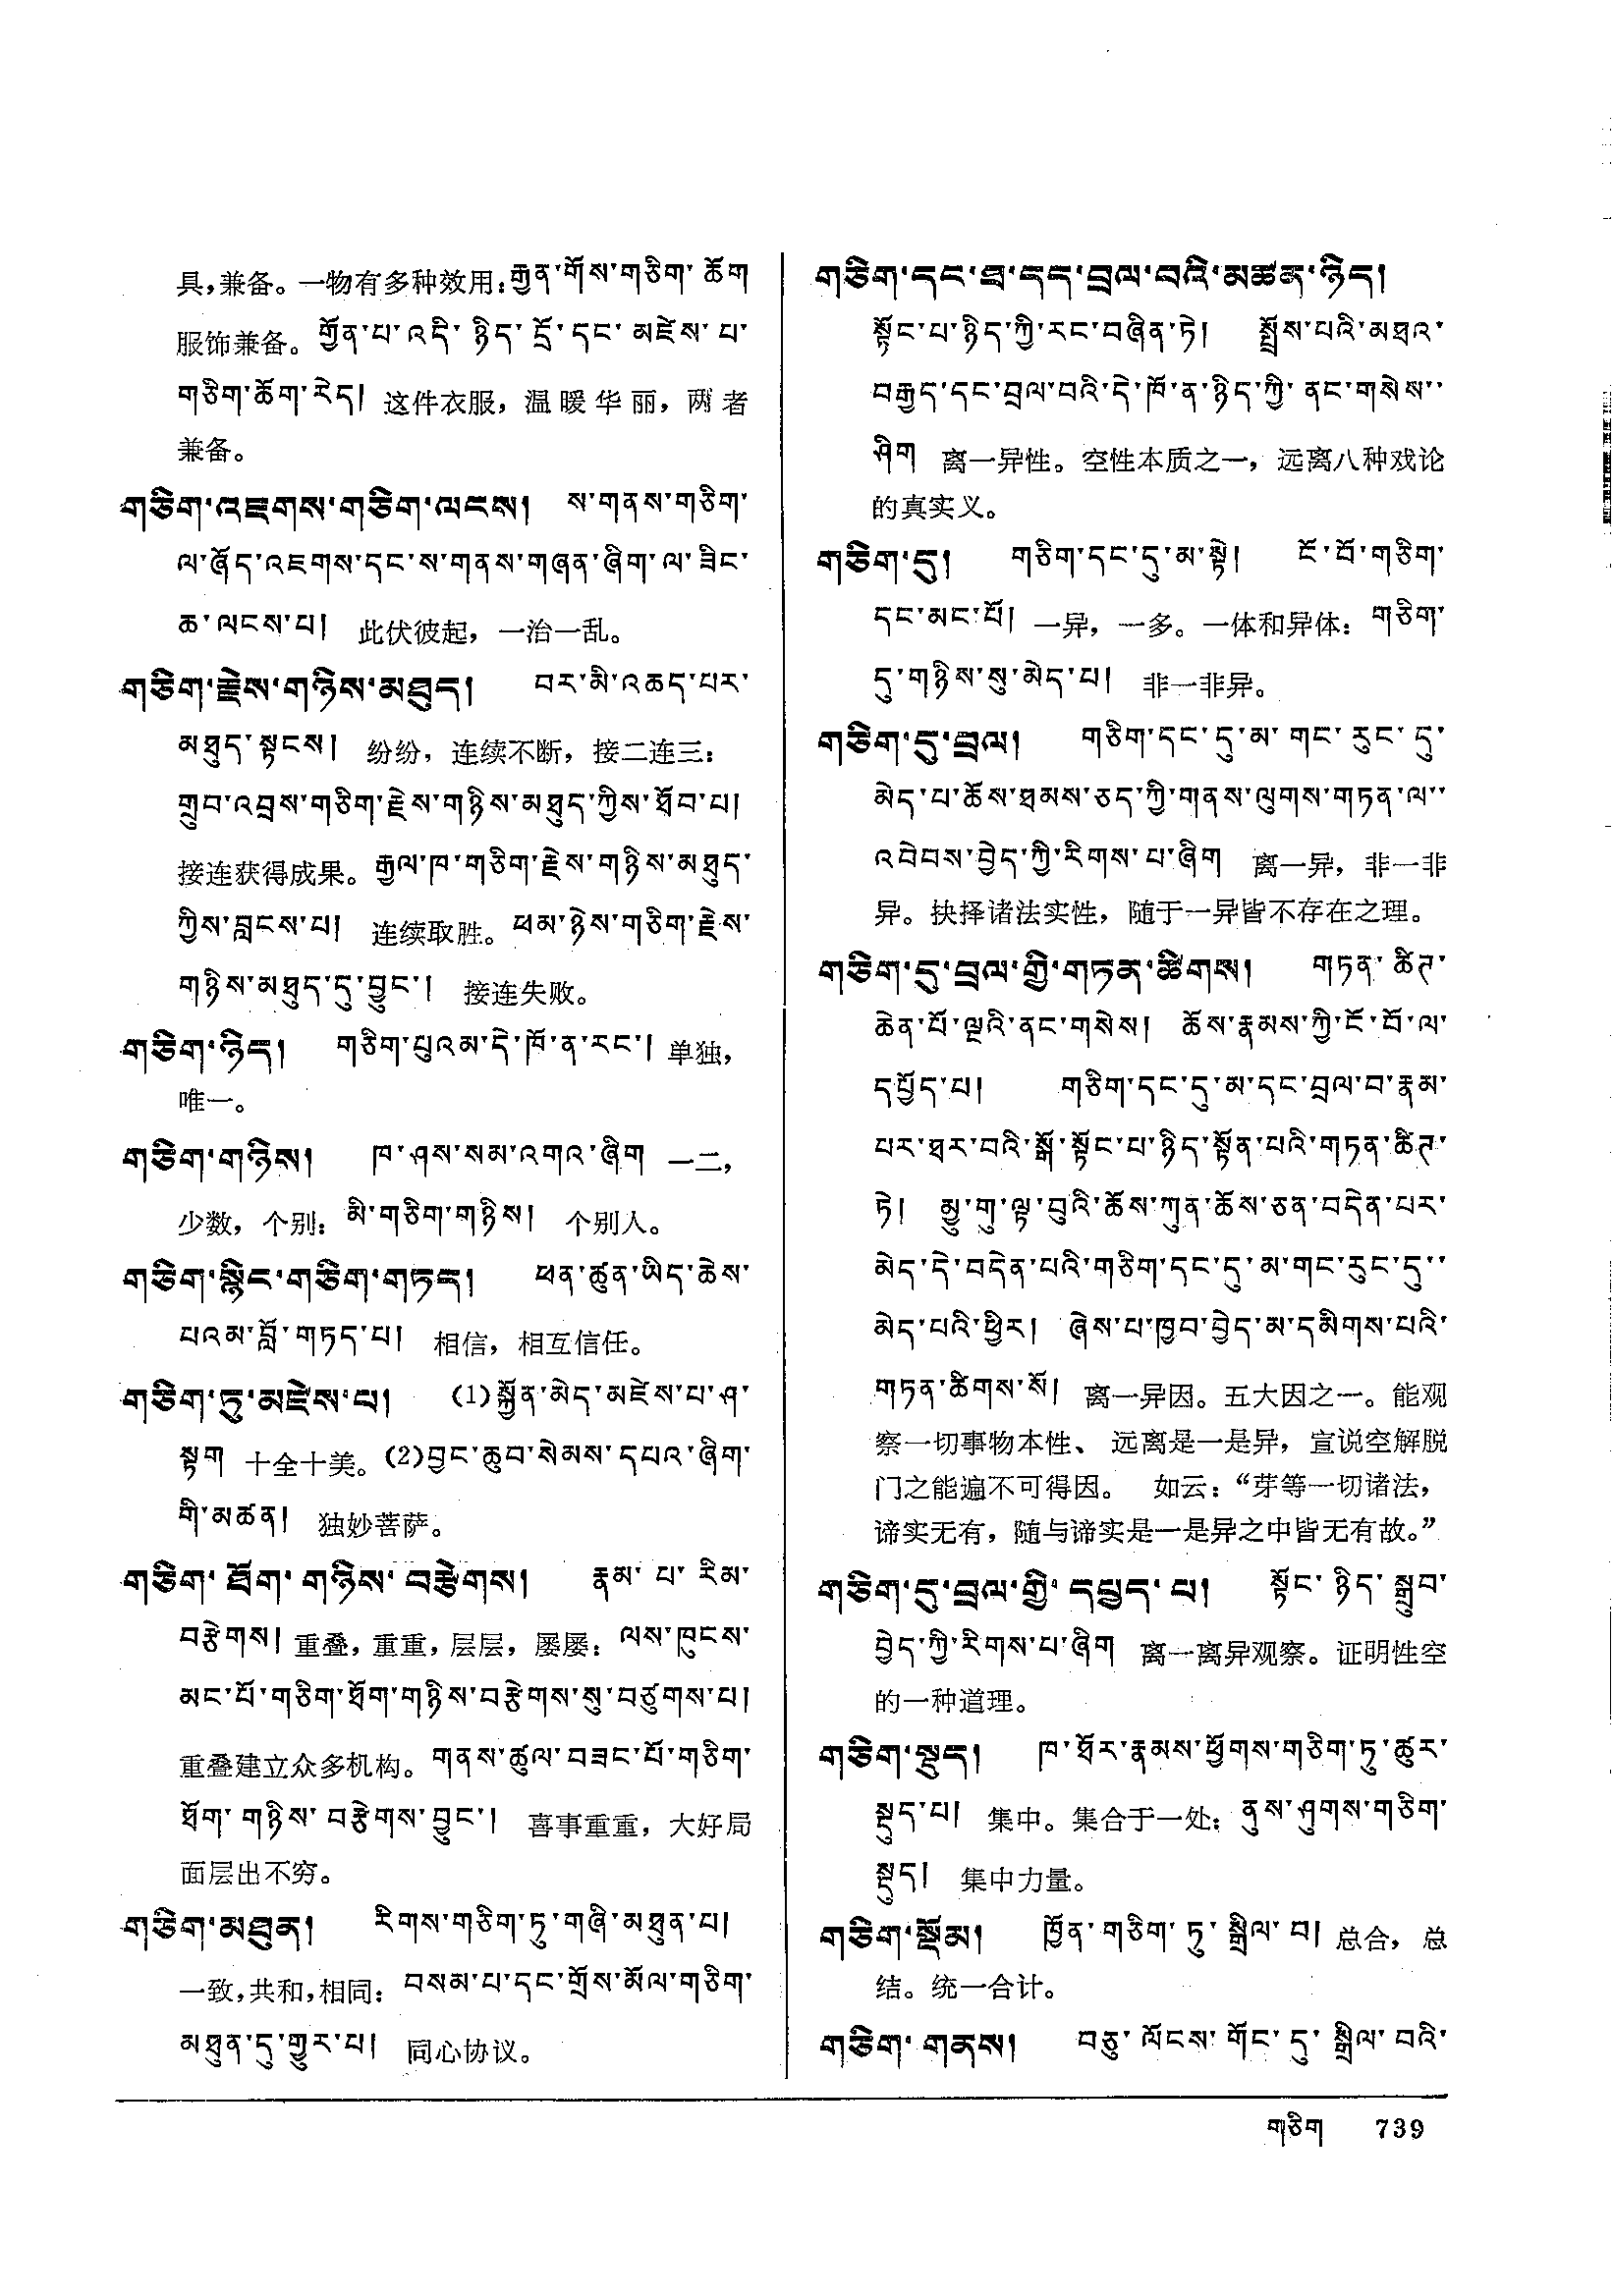 具，兼备。一物有多种效用：རྒྱན་གོས་གཅིག་ཆོག
服饰兼备。གྱོན་པ་འདི་ཉིད་དྲོ་དང་མཛེས་པ་
གཅིག་ཆོག་རེད། 这件衣服，温暖华丽，两者
兼备。
གཅིག་འཇགས་གཅིག་ལངས། ས་གནས་གཅིག་
ལ་ཞོད་འཇགས་དང་ས་གནས་གཞན་ཞིག་ལ་ཟིང་
ཆ་ལངས་པ། 此伏彼起，一治一乱。
གཅིག་རྗེས་གཉིས་མཐུད། བར་མི་འཆད་པར་
མཐུད་སྟངས། 纷纷，连续不断，接二连三：
གྲུབ་འབྲས་གཅིག་རྗེས་གཉིས་མཐུད་ཀྱིས་ཐོབ་པ།
接连获得成果。རྒྱལ་ཁ་གཅིག་རྗེས་གཉིས་མཐུད་
ཀྱིས་བླངས་པ། 连续取胜。ཕམ་ཉེས་གཅིག་རྗེས་
གཉིས་མཐུད་དུ་བྱུང་། 接连失败。
གཅིག་ཉིད། གཅིག་པུའམ་དེ་ཁོ་ན་རང་། 单独，
唯一。
གཅིག་གཉིས། ཁ་ཤས་སམ་འགའ་ཞིག 一二，
少数，个别：མི་གཅིག་གཉིས། 个别人。
གཅིག་སྙིང་གཅིག་གཏད། ཕན་ཚུན་ཡིད་ཆེས་
པའམ་བློ་གཏད་པ། 相信，相互信任。
གཅིག་ཏུ་མཛེས་པ། (1)སྐྱོན་མེད་མཛེས་པ་ཤ་
སྟག 十全十美。(2)བྱང་ཆུབ་སེམས་དཔའ་ཞིག་
གི་མཚན། 独妙菩萨。
གཅིག་ཐོག་གཉིས་བརྩེགས། རྣམ་པ་རིམ་
བརྩེགས། 重叠，重重，层层，屡屡：ལས་ཁུངས་
མང་པོ་གཅིག་ཐོག་གཉིས་བརྩེགས་སུ་བཙུགས་པ།
重叠建立众多机构。གནས་ཚུལ་བཟང་པོ་གཅིག་
ཐོག་གཉིས་བརྩེགས་བྱུང་། 喜事重重，大好局
面层出不穷。
གཅིག་མཐུན། རིགས་གཅིག་ཏུ་གཞི་མཐུན་པ།
一致，共和，相同：བསམ་པ་དང་གྲོས་མོལ་གཅིག་
མཐུན་དུ་གྱུར་པ། 同心协议。
གཅིག་དང་ཐ་དད་བྲལ་བའི་མཚན་ཉིད།
སྟོང་པ་ཉིད་ཀྱི་རང་བཞིན་ཏེ། སྤྲོས་པའི་མཐའ་
བརྒྱད་དང་བྲལ་བའི་དེ་ཁོ་ན་ཉིད་ཀྱི་ནང་གསེས་་
ཤིག 离一异性。空性本质之一，远离八种戏论
的真实义。
གཅིག་དུ། གཅིག་དང་དུ་མ་སྟེ། ངོ་བོ་གཅིག་
དང་མང་པོ། 一异，一多。一体和异体：གཅིག་
དུ་གཉིས་སུ་མེད་པ། 非一非异。
གཅིག་དུ་བྲལ། གཅིག་དང་དུ་མ་གང་རུང་དུ་
མེད་པ་ཆོས་ཐམས་ཅད་ཀྱི་གནས་ལུགས་གཏན་ལ་་
འབེབས་བྱེད་ཀྱི་རིགས་པ་ཞིག 离一异，非一非
异。抉择诸法实性，随于一异皆不存在之理。
གཅིག་དུ་བྲལ་གྱི་གཏན་ཚིགས། གཏན་ཚིཊ་
ཆེན་པོ་ལྔའི་ནང་གསེས། ཆོས་རྣམས་ཀྱི་ངོ་བོ་ལ་
དཔྱོད་པ། གཅིག་དང་དུ་མ་དང་བྲལ་བ་རྣམ་
པར་ཐར་བའི་སྒོ་སྟོང་པ་ཉིད་སྟོན་པའི་གཏན་ཚིཊ་
ཏེ། མྱུ་གུ་ལྟ་བུའི་ཆོས་ཀུན་ཆོས་ཅན་བདེན་པར་
མེད་དེ་བདེན་པའི་གཅིག་དང་དུ་མ་གང་རུང་དུ་་
མེད་པའི་ཕྱིར། ཞེས་པ་ཁྱབ་བྱེད་མ་དམིགས་པའི་
གཏན་ཚིགས་སོ། 离一异因。五大因之一。能观
察一切事物本性、远离是一是异，宣说空解脱
门之能遍不可得因。 如云：“芽等一切诸法，
谛实无有，随与谛实是一是异之中皆无有故。”
གཅིག་དུ་བྲལ་གྱི་དཔྱད་པ། སྟོང་ཉིད་སྒྲུབ་
བྱེད་ཀྱི་རིགས་པ་ཞིག 离一离异观察。证明性空
的一种道理。
གཅིག་སྡུད། ཁ་ཐོར་རྣམས་ཕྱོགས་གཅིག་ཏུ་ཚུར་
སྡུད་པ། 集中。集合于一处：ནུས་ཤུགས་གཅིག་
སྡུད། 集中力量。
གཅིག་སྡོམ། ཁྱོན་གཅིག་ཏུ་སྒྲིལ་བ། 总合，总
结。统一合计。
གཅིག་གནས། བཅུ་ལོངས་གོང་དུ་སྒྲིལ་བའི་
གཅིག 739